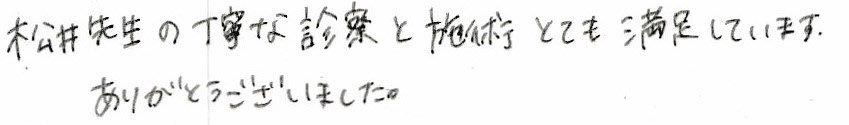 松井先生の丁寧な診察と施術とても満足しています.
ありがとうございました。